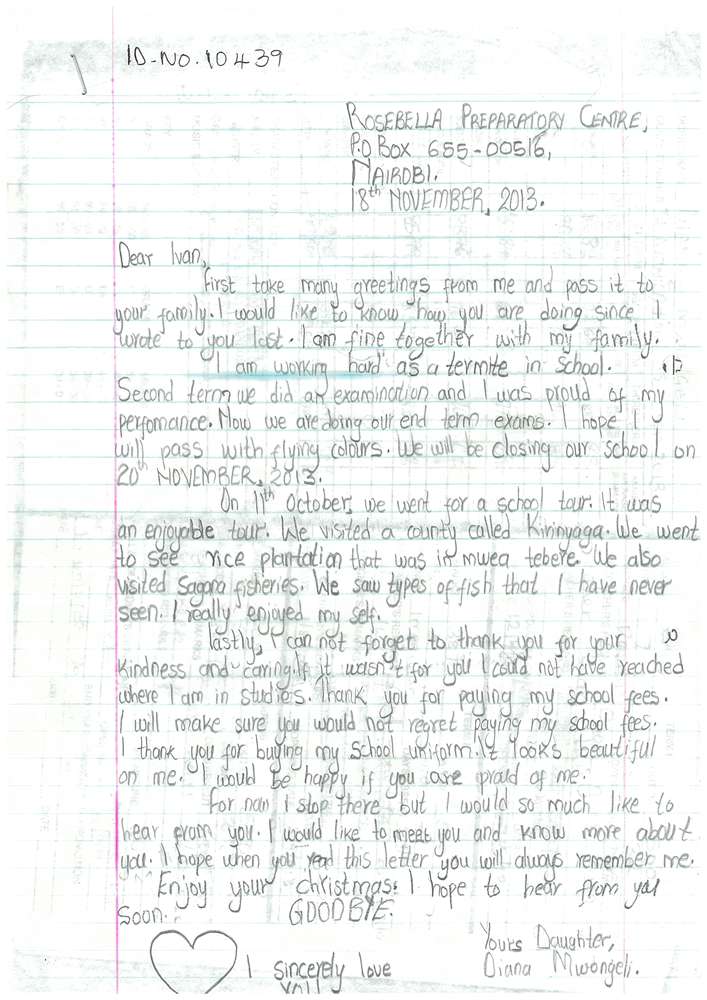 ID-NO.10439
ROSEBELLA PREPARATORY CENTRE,
P.O BOX 655-00516,
NAIROBI.
18th NOVEMBER, 2013.
Dear Ivan,
First take many greetings from me and pass it to
your family. I would like to know how you are doing since I
wrote to you last. I am fine together with my family.
I am working hard as a termite in school.
Second term we did an examination and I was proud of my
perfomance. Now we are doing our end term exams. I hope I
will pass with flying colours. We will be closing our school on
20th NOVEMBER, 2013.
On 11th October, we went for a school tour. It was
an enjoyable tour. We visited a county called Kirinyaga. We went
to see rice plantation that was in mwea tebere. We also
visited Sagana fisheries. We saw types of fish that I have never
seen. I really enjoyed my self.
lastly, I can not forget to thank you for your
kindness and caring. If it wasn't for you I could not have reached
where I am in studies. Thank you for paying my school fees.
I will make sure you would not regret paying my school fees.
I thank you for buying my school uniform. It looks beautiful
on me. I would be happy if you are proud of me.
For now i stop there but I would so much like to
hear from you. I would like to meet you and know more about
you. I hope when you read this letter you will always remember me.
Enjoy your christmas. I hope to hear from you
soon. GOODBYE.
Yours Daughter,
Diana Mwongeli.
I sincerely love
YOU